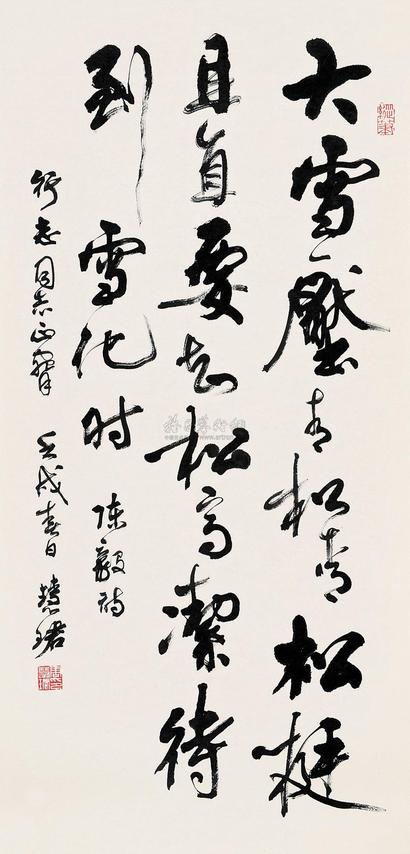 大雪壓青松青松挺
且直要知松高潔待
到雪化时 陈毅诗
志同志正 壬戌春日 慧珺